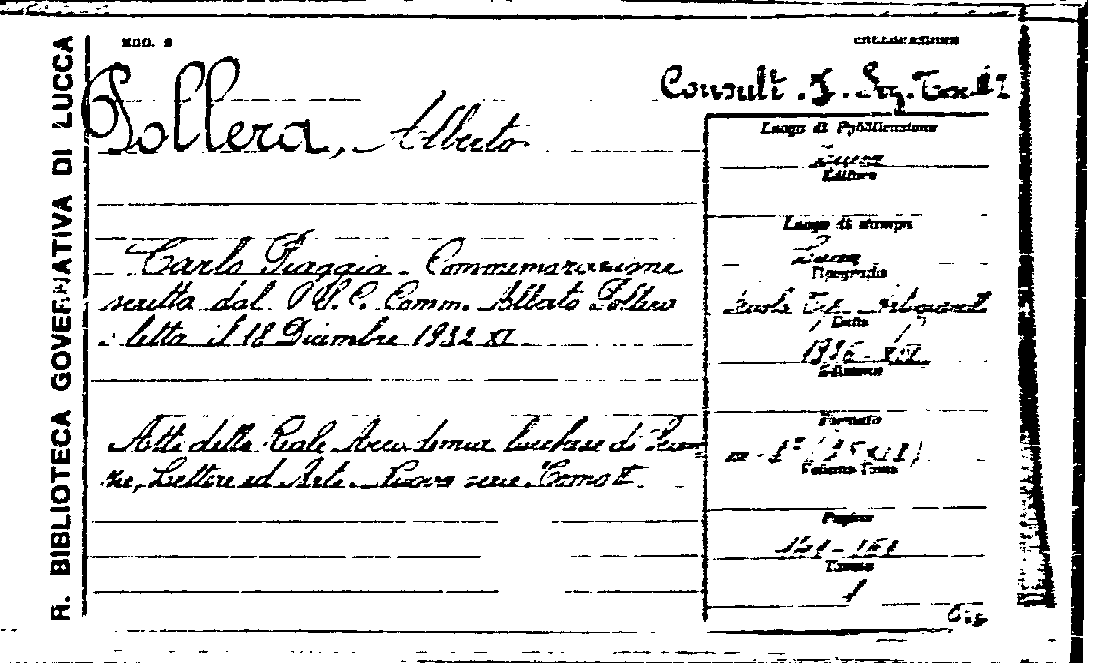 R. BIBLIOTECA GOVERNATIVA DI LUCCA
MOD. 2
COLLOCAZIONE
Consult. J.
Pollera, Alberto
Carlo Piaggia. Commemorazione
scritta dal Comm. Alberto Pollera
letta il 18 Dicembre 1932 XI
Atti della Reale Accademia Lucchese di Scien-
ze, Lettere ed Arti. Nuova serie. Tomo II.
Luogo di Pubblicazione
Lucca
Editore
Luogo di stampa
Lucca
Tipografia
Scuola Tip. Artigianelli
Data
1936-XIV
Edizione
Formato
Volume Tomo
Pagine
Esempl.
1